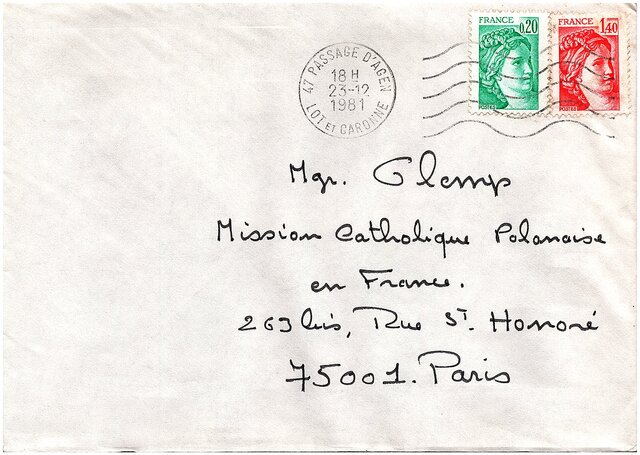 FRANCE 0,20
FRANCE 1,40
POSTES
POSTES
47 PASSAGE D'AGEN
18 H
23-12
1981
LOT ET GARONNE
Mgr. Glemp
Mission Catholique Polonaise
en France.
263 bis, Rue St. Honoré
75001. Paris